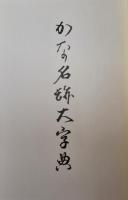 かな名跡大字典